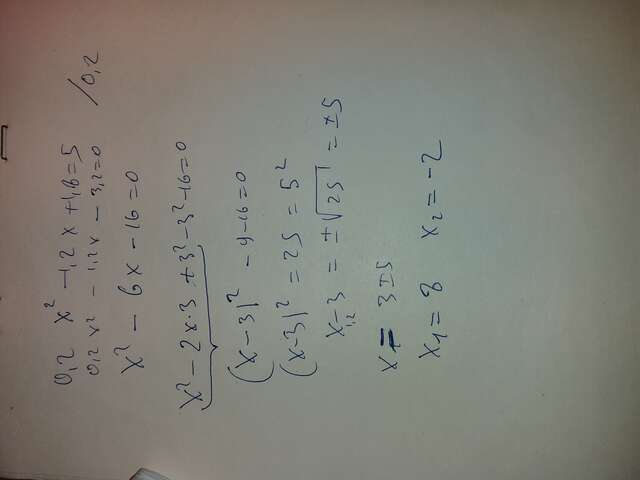 0,2 x² - 1,2 x + 1,8 = 5
0,2 x² - 1,2 x - 3,2 = 0 /0,2
x² - 6x - 16 = 0
x² - 2x·3 + 3² - 3² - 16 = 0
(x - 3)² - 9 - 16 = 0
(x - 3)² = 25 = 5²
x₁,₂ - 3 = ±√25 = ±5
x = 3 ± 5
x₁ = 8 x₂ = -2